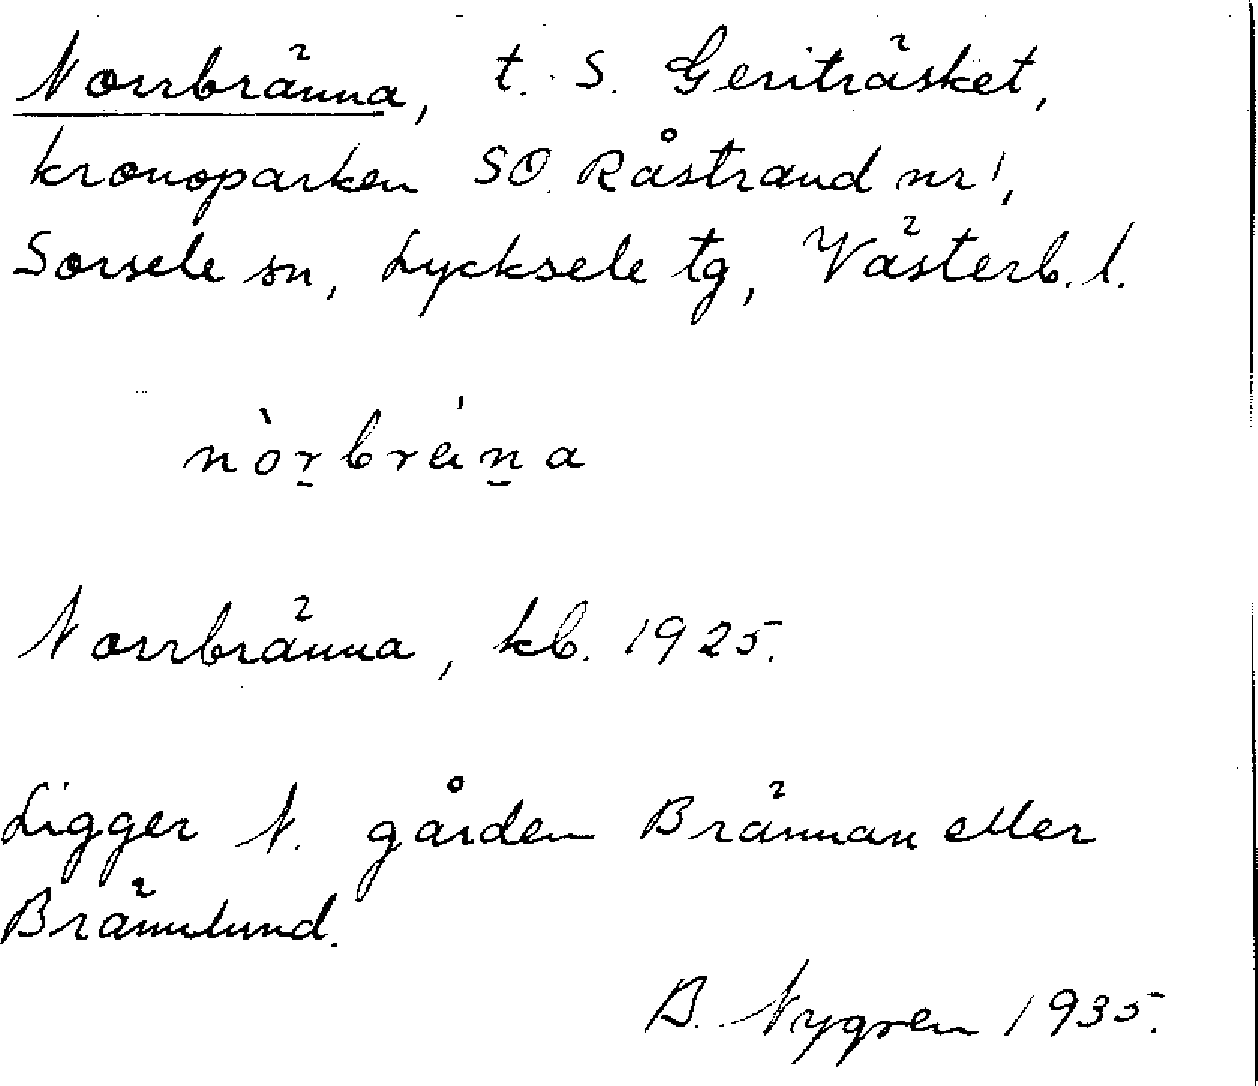 Norrbränna, t. S. Geriträsket,
kronoparken SO. Råstrand nr 1,
Sorsele sn, Lycksele tg, Västerb. l.
nòr̲brén̲a
Norrbränna, kb. 1925.
Ligger N. gården Brännan eller
Brännlund.
B. Nygren 1935.